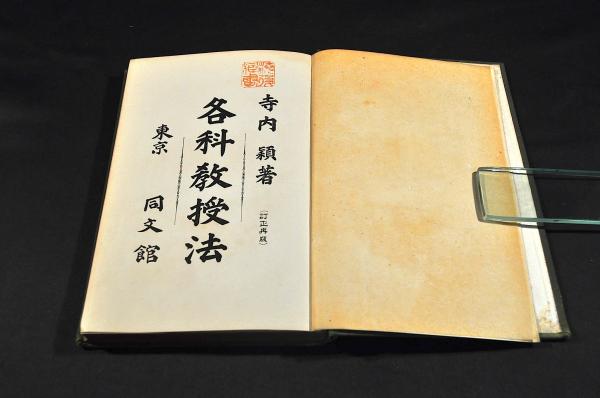 寺内 頴著
(訂正再版)
各科教授法
東京 同文館